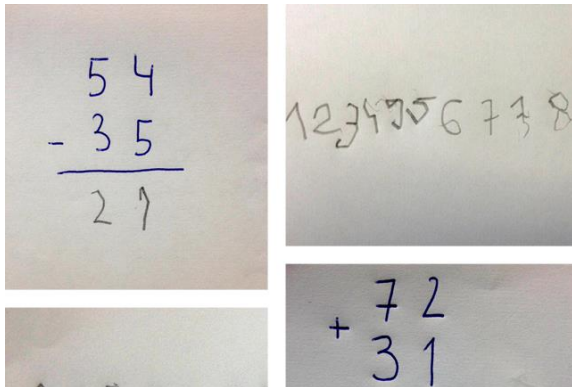 54
- 35
21
1 2 3 4 5 6 7 8
72
+ 31